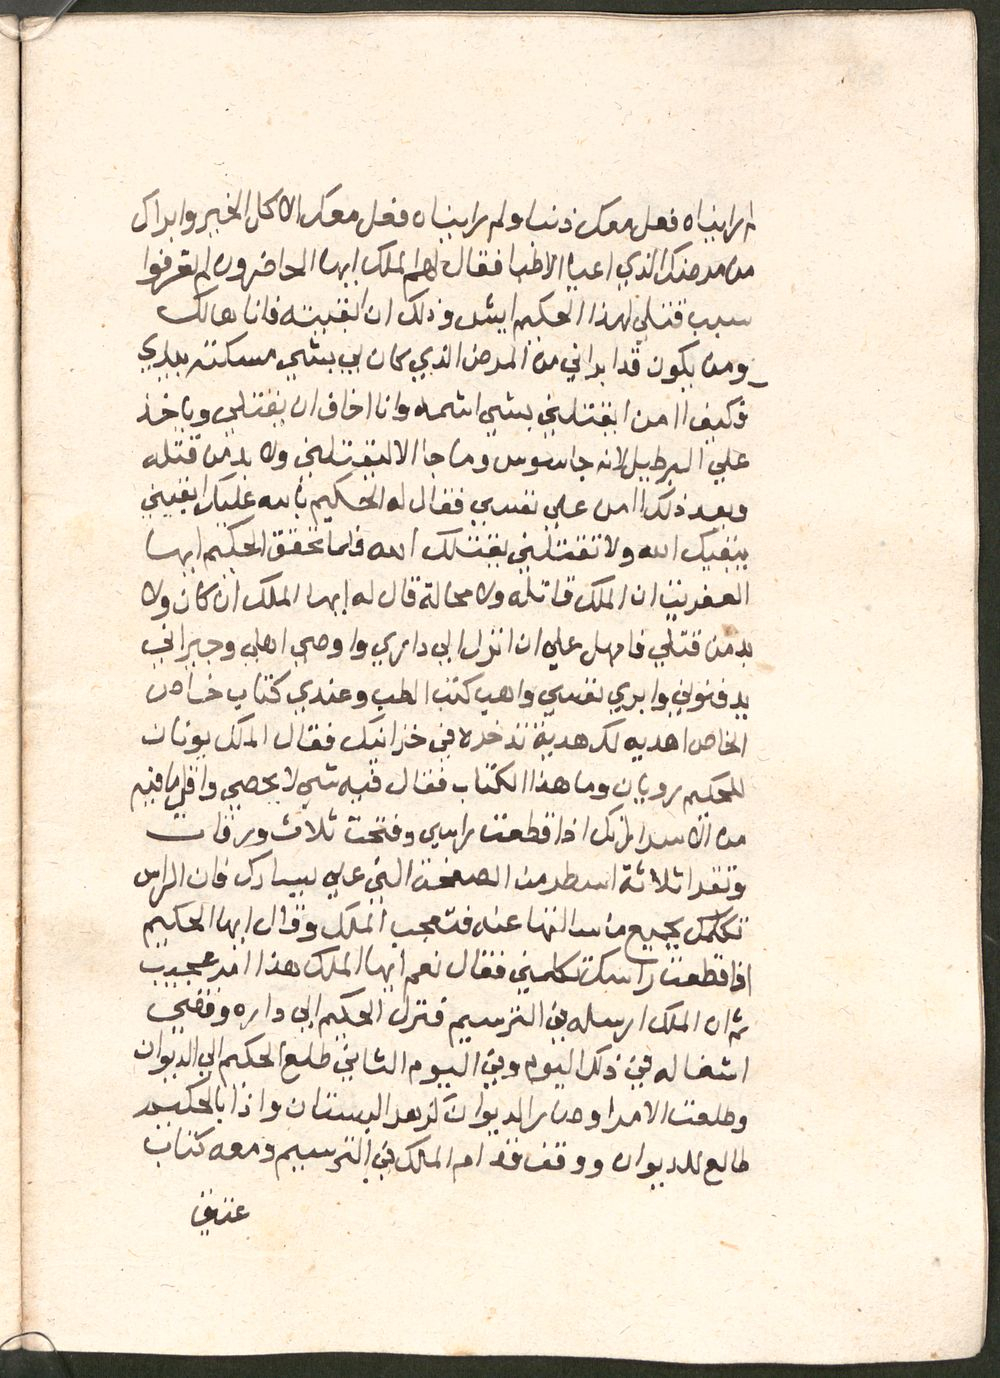 ما رايناه فعل معك ذنبا ولم رايناه فعل معك الا كل الخير وابراك
من مرضك الذي اعيا الاطبا فقال لهم الملك ايها الحاضرون لم تعرفوا
سبب قتلي لهذا الحكيم ايش وذلك ان ابقيته فانا هالك
ومن يكون قد ابراني من المرض الذي كان بي بشي مسكته بيدي
فكيف اامن ايقتلني بشي اشمه وانا اخاف ان يقتلني وياخذ
علي البرطيل لانه جاسوس وما جا الا ليقتلني ولا بد من قتله
وبعد ذلك اامن علي نفسي فقال له الحكيم بالله عليك ابقيني
يبقيك الله ولا تقتلني يقتلك الله فلما تحقق الحكيم ايها
العفريت ان الملك قاتله ولا محالة قال له ايها الملك ان كان ولا
بد من قتلي فامهل علي ان انزل الي داري واوصي اهلي وجيراني
يدفنوني وابري نفسي واهب كتب الطب وعندي كتاب خاص
الخاص اهديه لك هدية تدخره في خزانتك فقال الملك يونان
للحكيم رويان وما هذا الكتاب فقال فيه شي لا يحصي واقل ما فيه
من الاسرار انك اذا قطعت راسي وفتحت ثلاث ورقات
وتقرا ثلاثة اسطر من الصفحة التي علي يسارك فان الراس
تكلمك بجميع ما سالتها عنه فتعجب الملك وقال ايها الحكيم
اذا قطعت راسك تكلمني فقال نعم ايها الملك هذا امر عجيب
ثم ان الملك ارسله في الترسيم فنزل الحكيم الي داره وقضي
اشغاله في ذلك اليوم وفي اليوم الثاني طلع الحكيم الي الديوان
وطلعت الامرا وصار الديوان كزهر البستان واذا بالحكيم
طالع للديوان ووقف قدام الملك في الترسيم ومعه كتاب
عتيق